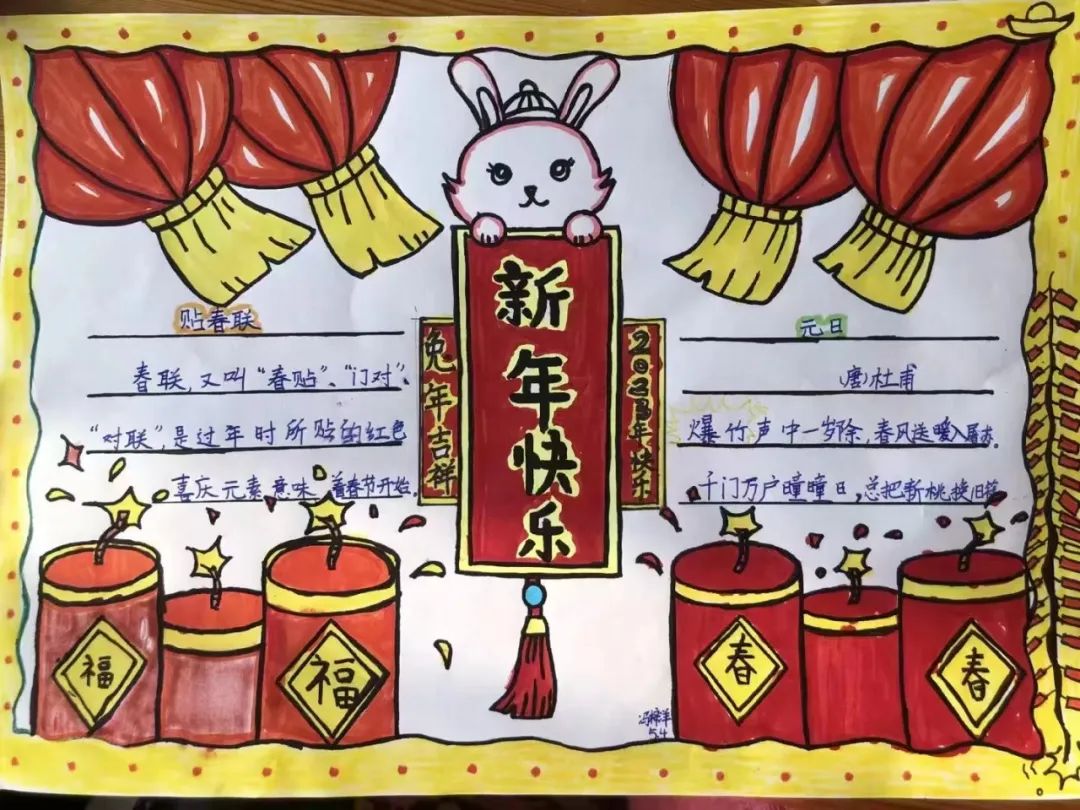 贴春联
春联，又叫“春贴”、“门对”、
“对联”，是过年时所贴的红色
喜庆元素意味着春节开始。
兔年吉祥
新年快乐
2023年快乐
元日
(唐)杜甫
爆竹声中一岁除，春风送暖入屠苏。
千门万户曈曈日，总把新桃换旧符
福
福
春
春